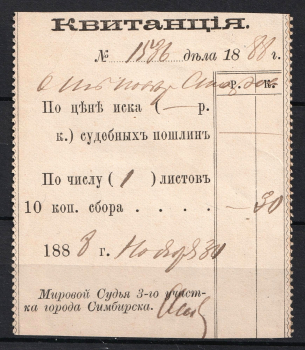 Квитанція.
№ 1596 дѣла 1888 г.
р. к.
По цѣнѣ иска (— р.
к.) судебныхъ пошлинъ
По числу (1) листовъ
10 коп. сбора . . . . — 30
1888 г. Ноября 30
Мировой Судья 3-го участ-
ка города Симбирска.